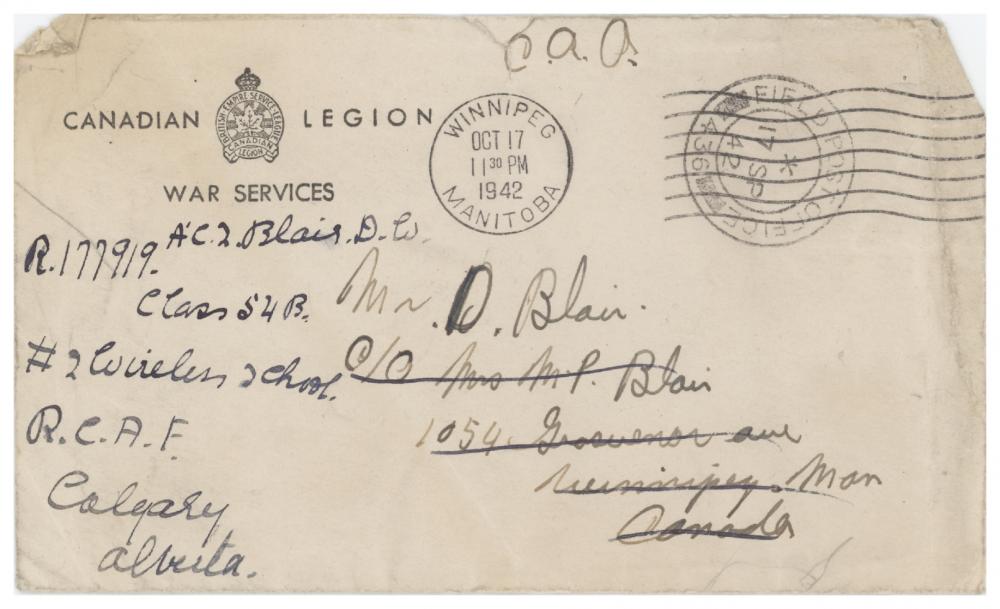 C.A.A.
CANADIAN LEGION
BRITISH EMPIRE SERVICE LEAGUE
CANADIAN LEGION
WAR SERVICES
WINNIPEG
OCT 17
11 30 PM
1942
MANITOBA
FIELD POST OFFICE
17 SP
42
436
R.177919. A.C.2. Blair. D.W.
Class 54 B.
# 2 Wireless School.
R.C.A.F.
Calgary
Alberta.
Mr. D. Blair.
C/O Mrs M.P. Blair
1054. Grosvenor ave
Winnipeg. Man
Canada